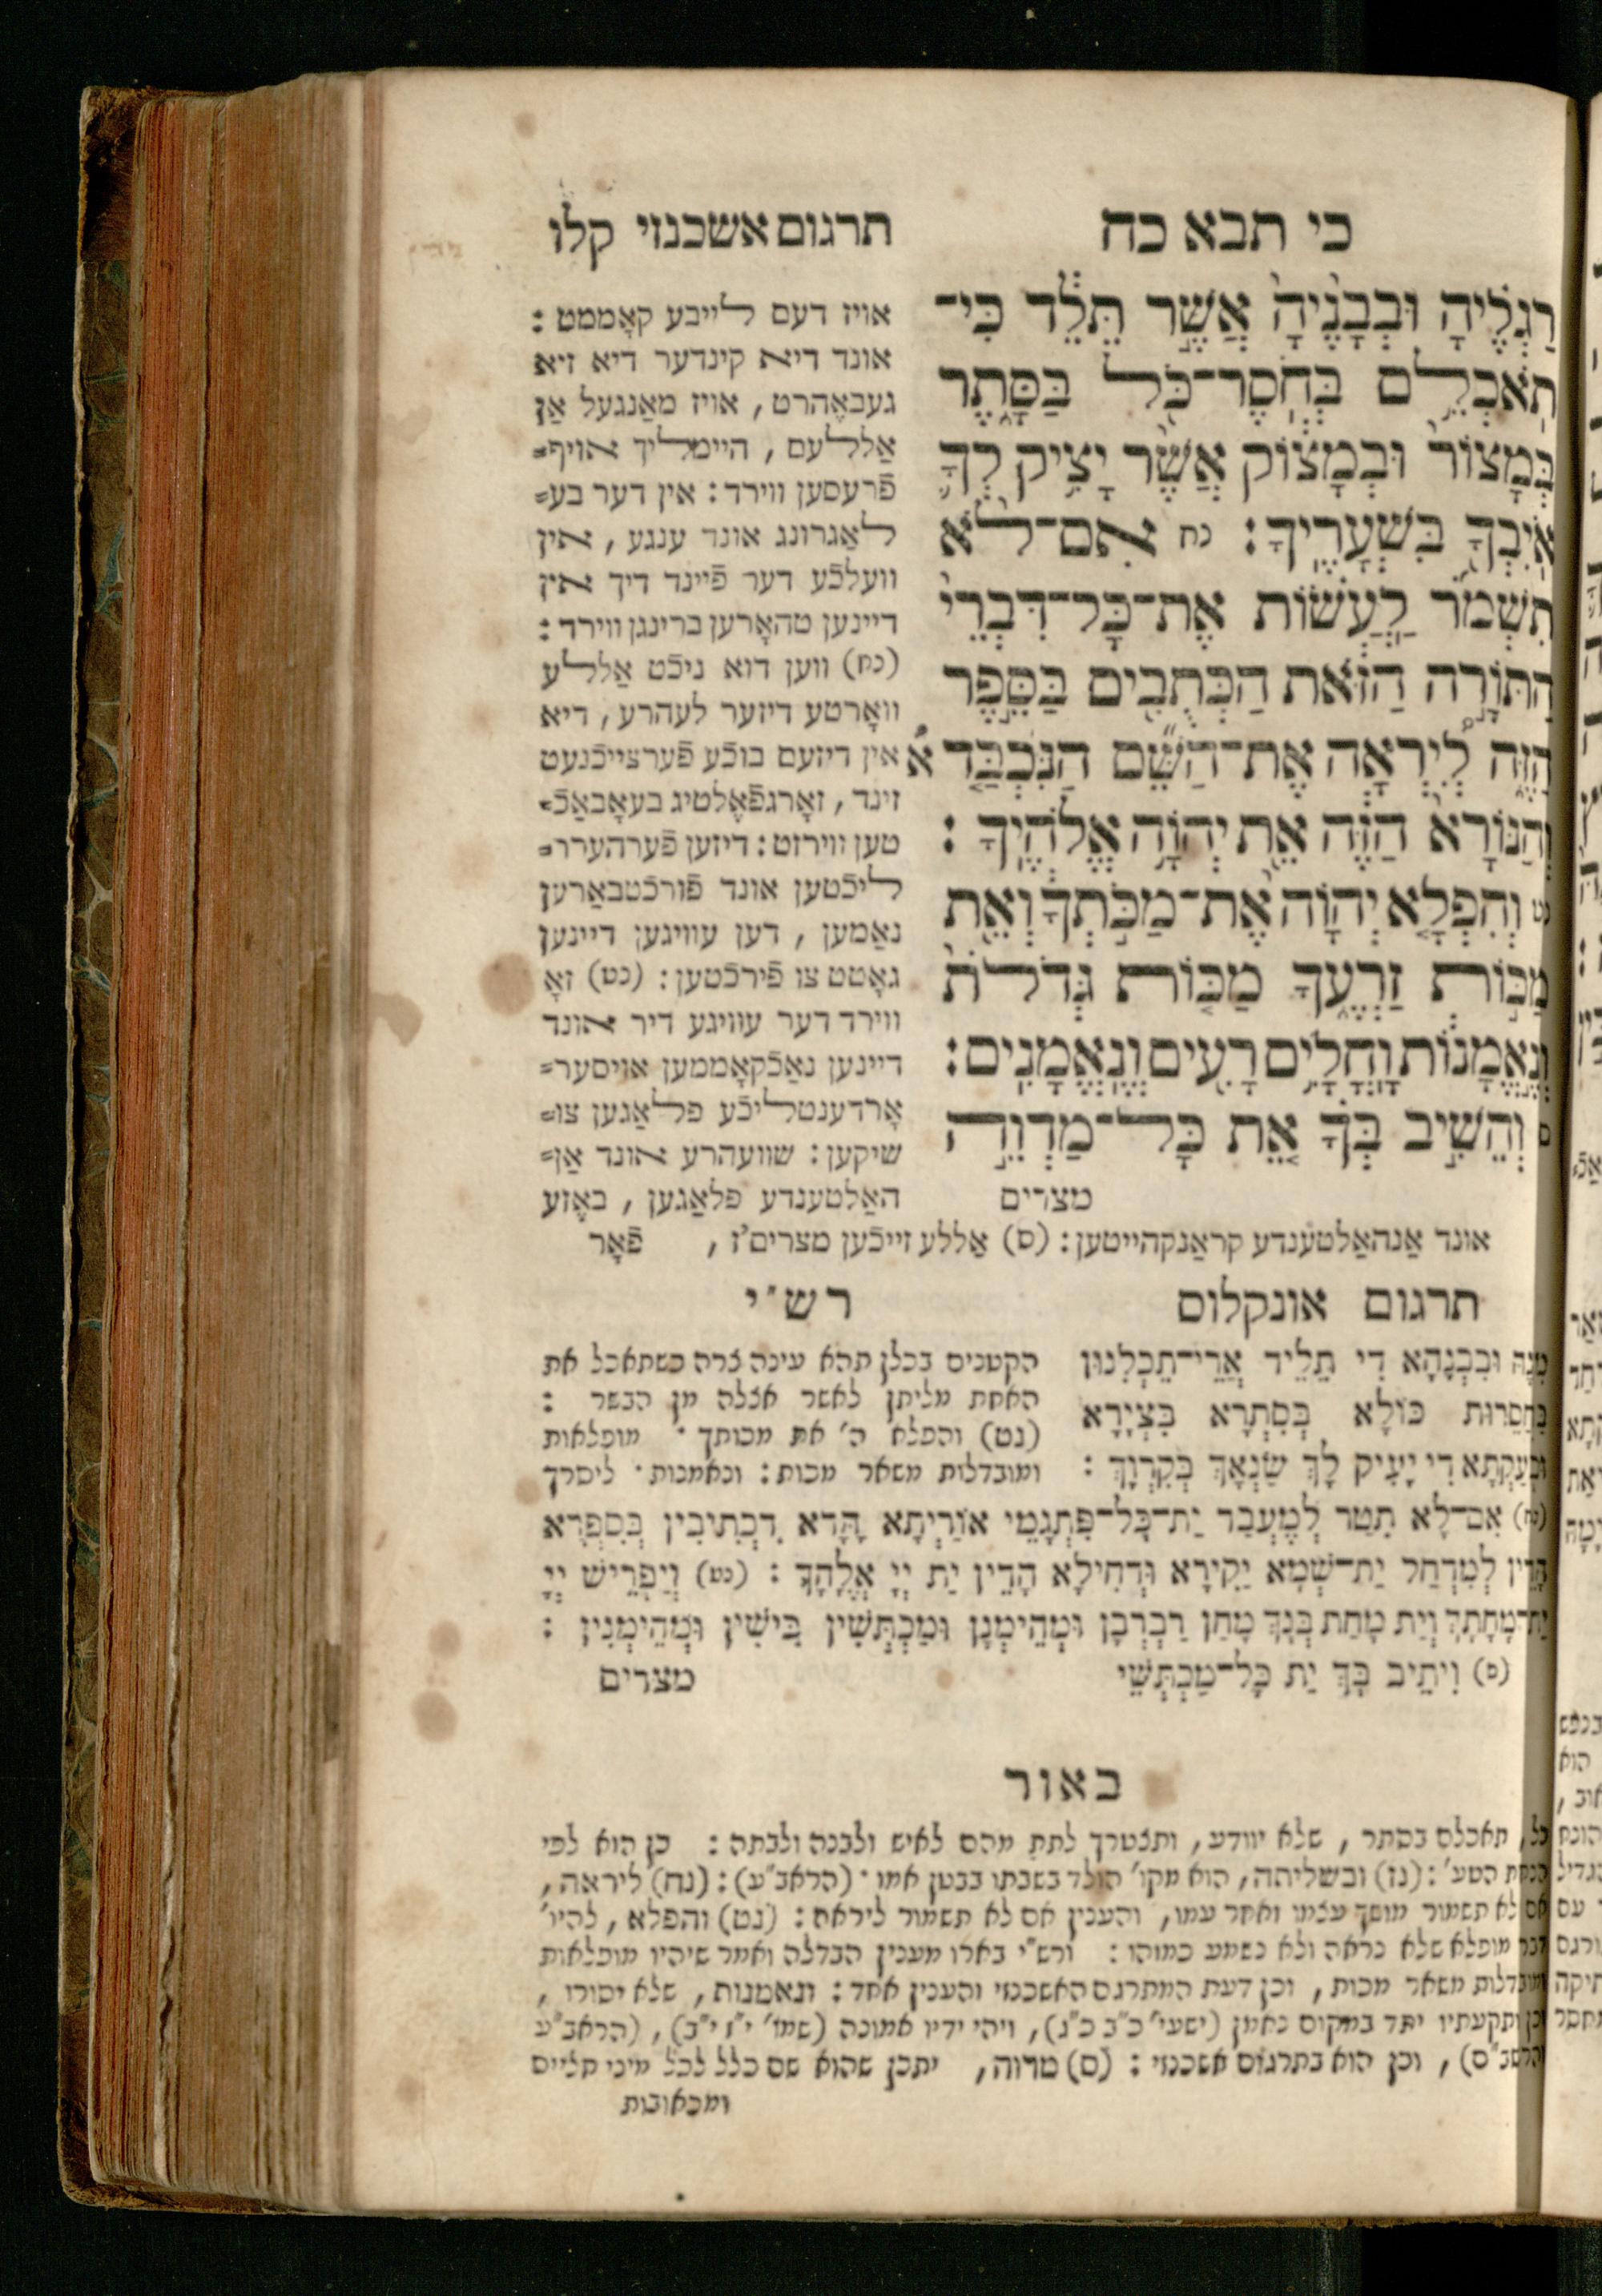 כי תבא כח
רַגְלֶ֗יהָ וּבְבָנֶ֙יהָ֙ אֲשֶׁ֣ר תֵּלֵ֔ד כִּי־
תֹֽאכְלֵ֥ם בְּחֹֽסֶר־כֹּ֖ל בַּסָּ֑תֶר
בְּמָצוֹר֙ וּבְמָצ֔וֹק אֲשֶׁ֨ר יָצִ֥יק לְךָ֛
אֹֽיִבְךָ֖ בִּשְׁעָרֶֽיךָ׃ נח אִם־לֹ֨א
תִשְׁמֹ֜ר לַֽעֲשׂ֗וֹת אֶת־כָּל־דִּבְרֵי֙
הַתּוֹרָ֣ה הַזֹּ֔את הַכְּתֻבִ֖ים בַּסֵּ֣פֶר
הַזֶּ֑ה לְ֠יִרְאָה אֶת־הַשֵּׁ֞ם הַנִּכְבָּ֤ד
וְהַנּוֹרָא֙ הַזֶּ֔ה אֵ֖ת יְהוָֹ֥ה אֱלֹהֶֽיךָ׃
נט וְהִפְלָ֤א יְהוָֹה֙ אֶת־מַכֹּ֣תְךָ֔ וְאֵ֖ת
מַכּ֣וֹת זַרְעֶ֑ךָ מַכּ֤וֹת גְּדֹלֹת֙
וְנֶ֣אֱמָנ֔וֹת וָֽחֳלָיִ֥ם רָעִ֖ים וְנֶֽאֱמָנִֽים׃
ס וְהֵשִׁ֣יב בְּךָ֗ אֵ֚ת כָּל־מַדְוֵ֣ה
מצרים
תרגום אשכנזי קלו
אויז דעם לייבע קאָממט :
אונד דיא קינדער דיא זיא
געבאֶהרט, אויז מאַנגעל אַן
אַללעם, היימליך אויף=
פֿרעסען ווירד: אין דער בע=
לאַגרונג אונד ענגע, אין
וועלכֿע דער פֿיינד דיך אין
דיינען טהאָרען ברינגן ווירד :
(נח) ווען דוא ניכֿט אַללע
וואָרטע דיזער לעהרע, דיא
אין דיזעם בוכֿע פֿערצייכֿנעט
זינד, זאָרגפֿאֶלטיג בעאָבאַכֿ=
טען ווירזט: דיזען פֿערהערר=
ליכֿטען אונד פֿורכֿטבאַרען
נאַמען, דען עוויגען דיינען
גאָטט צו פֿירכֿטען: (נט) זאָ
ווירד דער עוויגע דיר אונד
דיינען נאַכֿקאָממען אויסער=
אָרדענטליכֿע פלאַגען צו=
שיקען: שוועהרע אונד אַן=
האַלטענדע פלאַגען, באֶזע
אונד אַנהאַלטענדע קראַנקהייטען: (ס) אַללע זייכֿען מצרים'ז, פֿאָר
תרגום אונקלוס
מִנָּהּ וּבִבְנָהָא דִי תֵלֵיד אֲרֵי־תֵיכְלִנּוּן
בְּחַסִּרוּת כּוֹלָא בְּסִתְרָא בִּצְיָרָא
וּבְעָקְתָא דִי יָעִיק לָךְ שַׂנְאָךְ בְּקִרְוָךְ :
רש"י
הקטנים בכלן תהא עינה צרה כשתאכל את
האחת מליתן לאשר אצלה מן הבשר :
(נט) והפלא ה' את מכותך · מופלאות
ומובדלות משאר מכות: ונאמנות · ליסרך
(נח) אִם־לָא תִטַּר לְמֶעְבַּד יַת־כָּל־פִּתְגָמֵי אוֹרַיְתָא הָדָא דִכְתִיבִין בְּסִפְרָא
הָדֵין לְמִדְחַל יַת־שְׁמָא יַקִּירָא וּדְחִילָא הָדֵין יַת יְיָ אֱלָהָךְ : (נט) וְיַפְרֵישׁ יְיָ
יַת־מָחָתָךְ וְיַת מָחַת בְּנָךְ מָחַן רַבְרְבָן וּמְהֵימְנָן וּמַכְתְּשִׁין בִּישִׁין וּמְהֵימְנִין :
(ס) וִיתֵיב בָּךְ יַת כָּל־מַכְתְּשֵׁי מצרים
באור
כל, תאכלם בסתר, שלא יוודע, ותצטרך לתת מהם לאיש ולבנה ולבתה: כן הוא לפי
הנחת הטע': (נז) ובשליתה, הוא מקו' הולד בשבתו בבטן אמו · (הראב"ע): (נח) ליראה,
אם לא תשמור מושך עצמו ואחר עמו, והענין אם לא תשמור ליראה: (נט) והפלא, להיו'
דבר מופלא שלא נראה ולא נשמע כמוהו: ורש"י בארו מענין הבדלה ואמר שיהיו מופלאות
ומובדלות משאר מכות, וכן דעת המתרגם האשכנזי והענין אחד: ונאמנות, שלא יסורו,
וכן ותקעתיו יתד במקום נאמן (ישעי' כ"ב כ"ג), ויהי ידיו אמונה (שמו' י"ז י"ב), (הראב"ע
והרשב"ם), וכן הוא בתרגום אשכנזי: (ס) מדוה, יתכן שהוא שם כלל לכל מיני חליים
ומכאובות